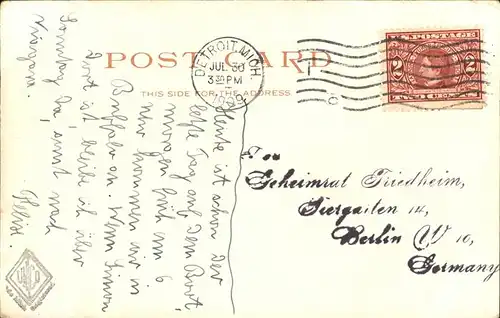 POST CARD
THIS SIDE FOR THE ADDRESS.
DETROIT, MICH.
JUL 30
3 30 PM
1909
POSTAGE
2 2
CENTS
Heute ist schon der
letzte Tag auf dem Boot,
morgen früh um 6
Uhr kommen wir in
Buffalo an. Wenn Simon
dort ist, bleibe ich über
Sonntag da, sonst nach
Niagara.
Geheimrat Friedheim,
Tiergarten 14,
Berlin W 10,
Germany